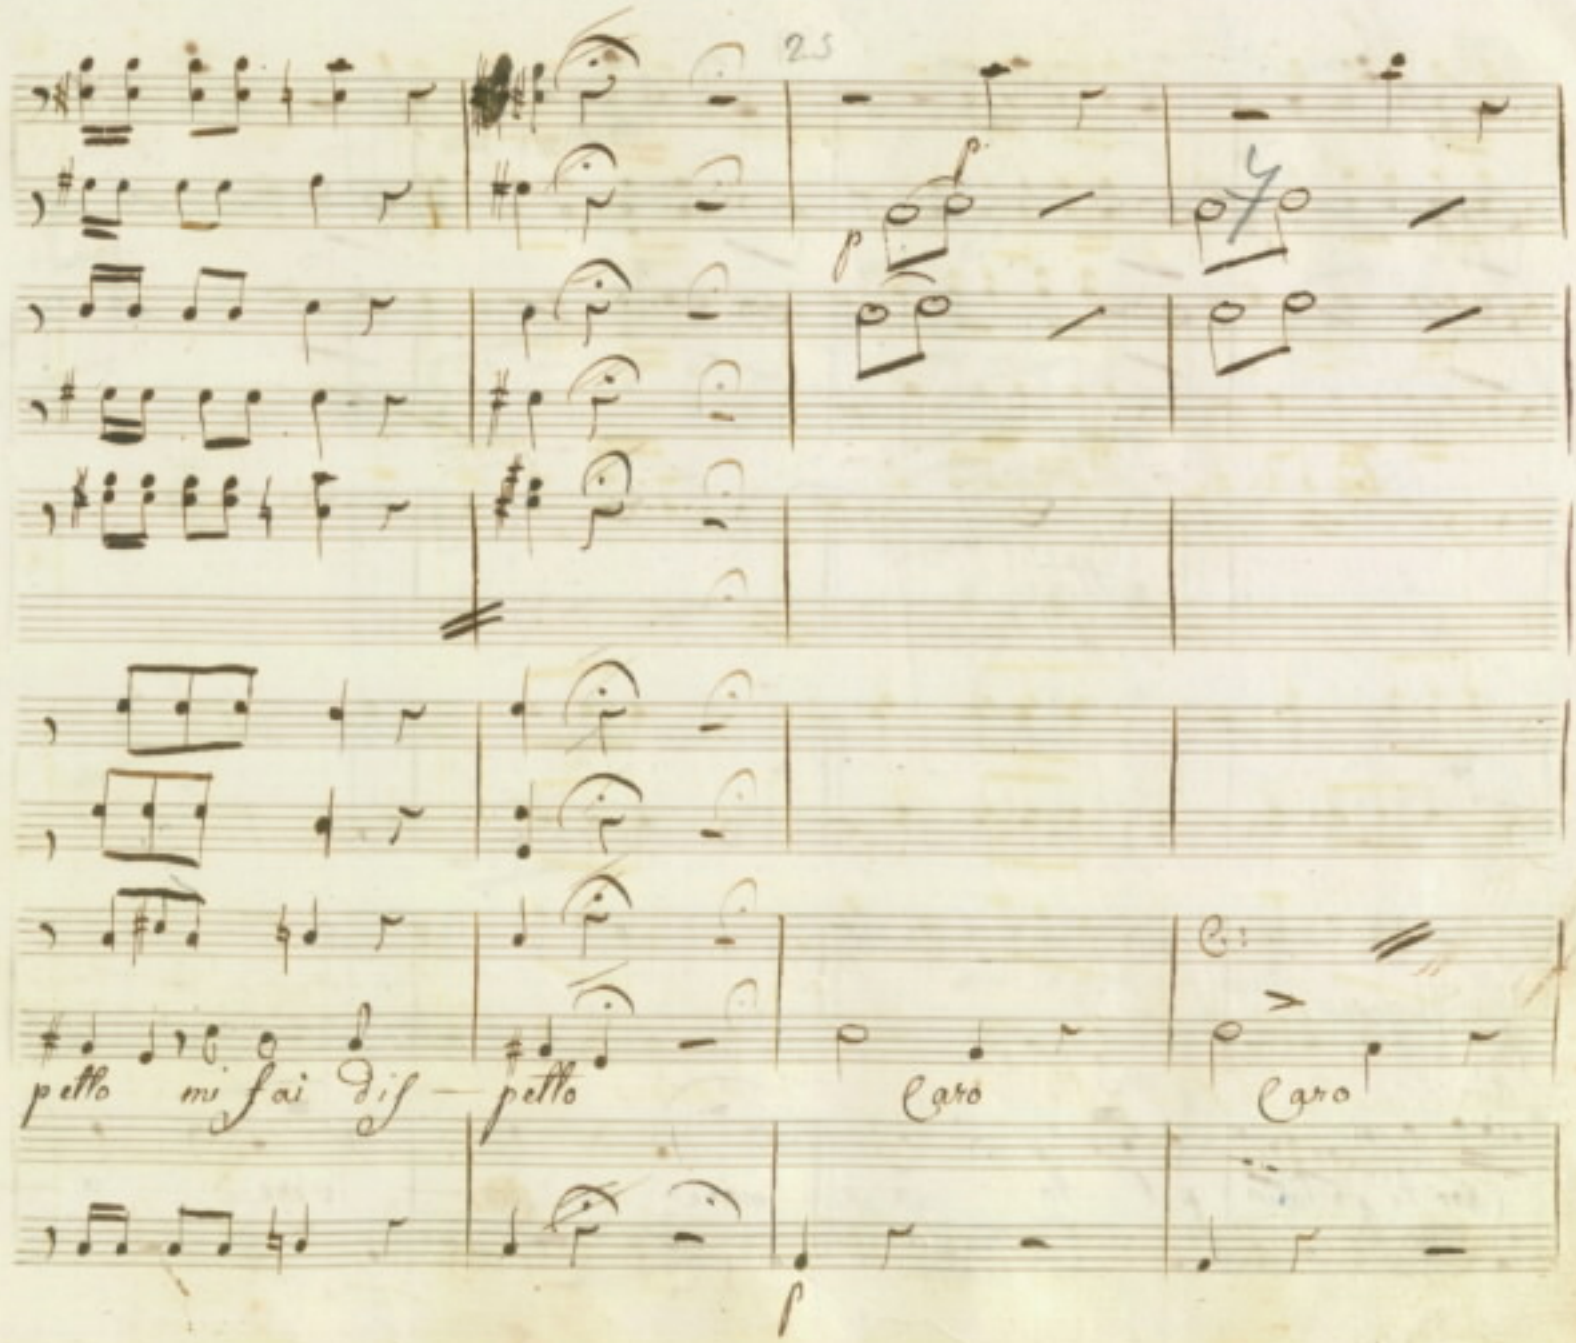 25
p.
p
petto mi fai dis - petto Caro Caro
p